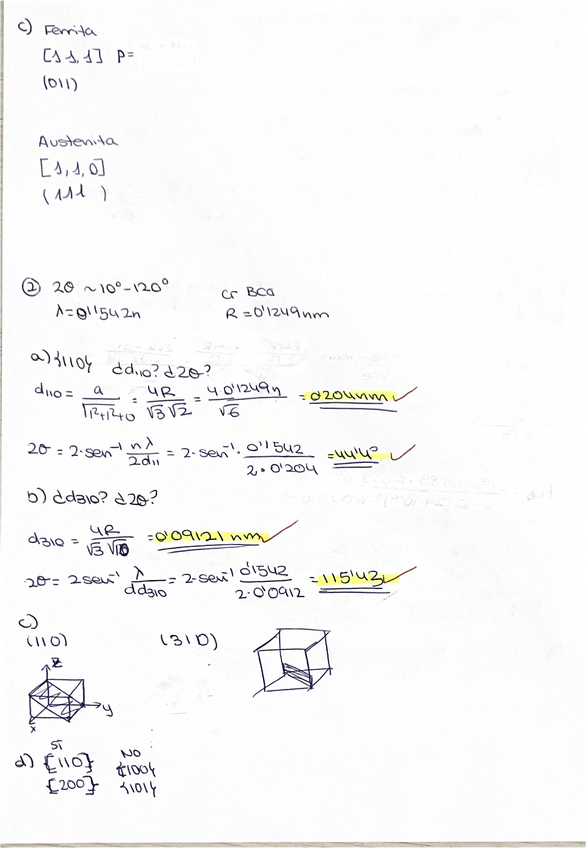 c) Ferrita
[1 1, 1] P=
(011)
Austenita
[1, 1, 0]
(111)
② 2θ ~ 10° - 120° Cr BCC
λ = 0'1542n R = 0'1249nm
a) {110} ¿d110? ¿2θ?
d110 = a / √(1²+1²+0) = 4R / √3 √2 = 4·0'1249n / √6 = 0'204nm ✓
2θ = 2·sen⁻¹ nλ / 2d11 = 2·sen⁻¹· 0'1542 / 2·0'204 = 44'4° ✓
b) ¿d310? ¿2θ?
d310 = 4R / √3 √10 = 0'09121 nm ✓
2θ = 2sen⁻¹ λ / dd310 = 2·sen⁻¹ 0'1542 / 2·0'0912 = 115'43 ✓
c)
(110) (310)
z
y
x
SI NO
d) {110} {100}
{200} {101}